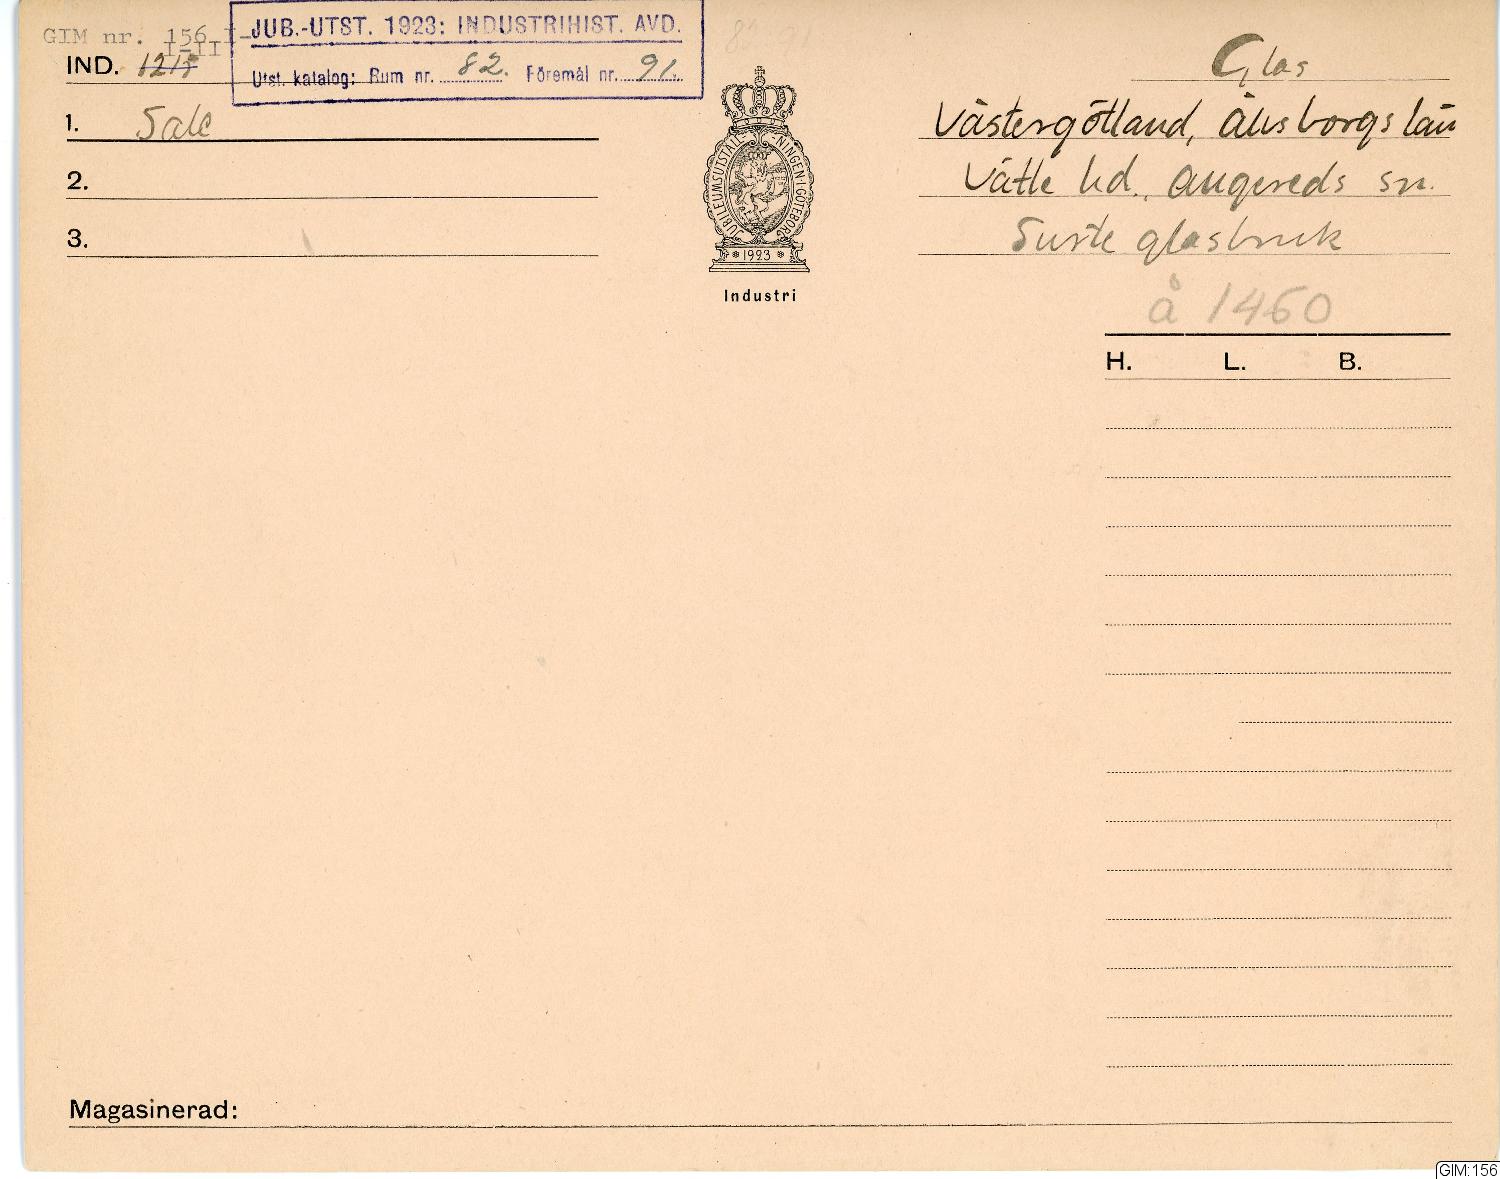 GIM nr. 156 I-
I-II
IND. 1215
JUB.-UTST. 1923: INDUSTRIHIST. AVD.
Utst. katalog: Rum nr. 82. Föremål nr. 91.
82 91
1. Sale
2.
3.
JUBILEUMSUTSTÄLLNINGEN I GÖTEBORG
1923
Industri
Glas
Västergötland, Älvsborgs län
Vättle hd., Angereds sn.
Surte glasbruk
å 1460
H. L. B.
Magasinerad:
GIM:156